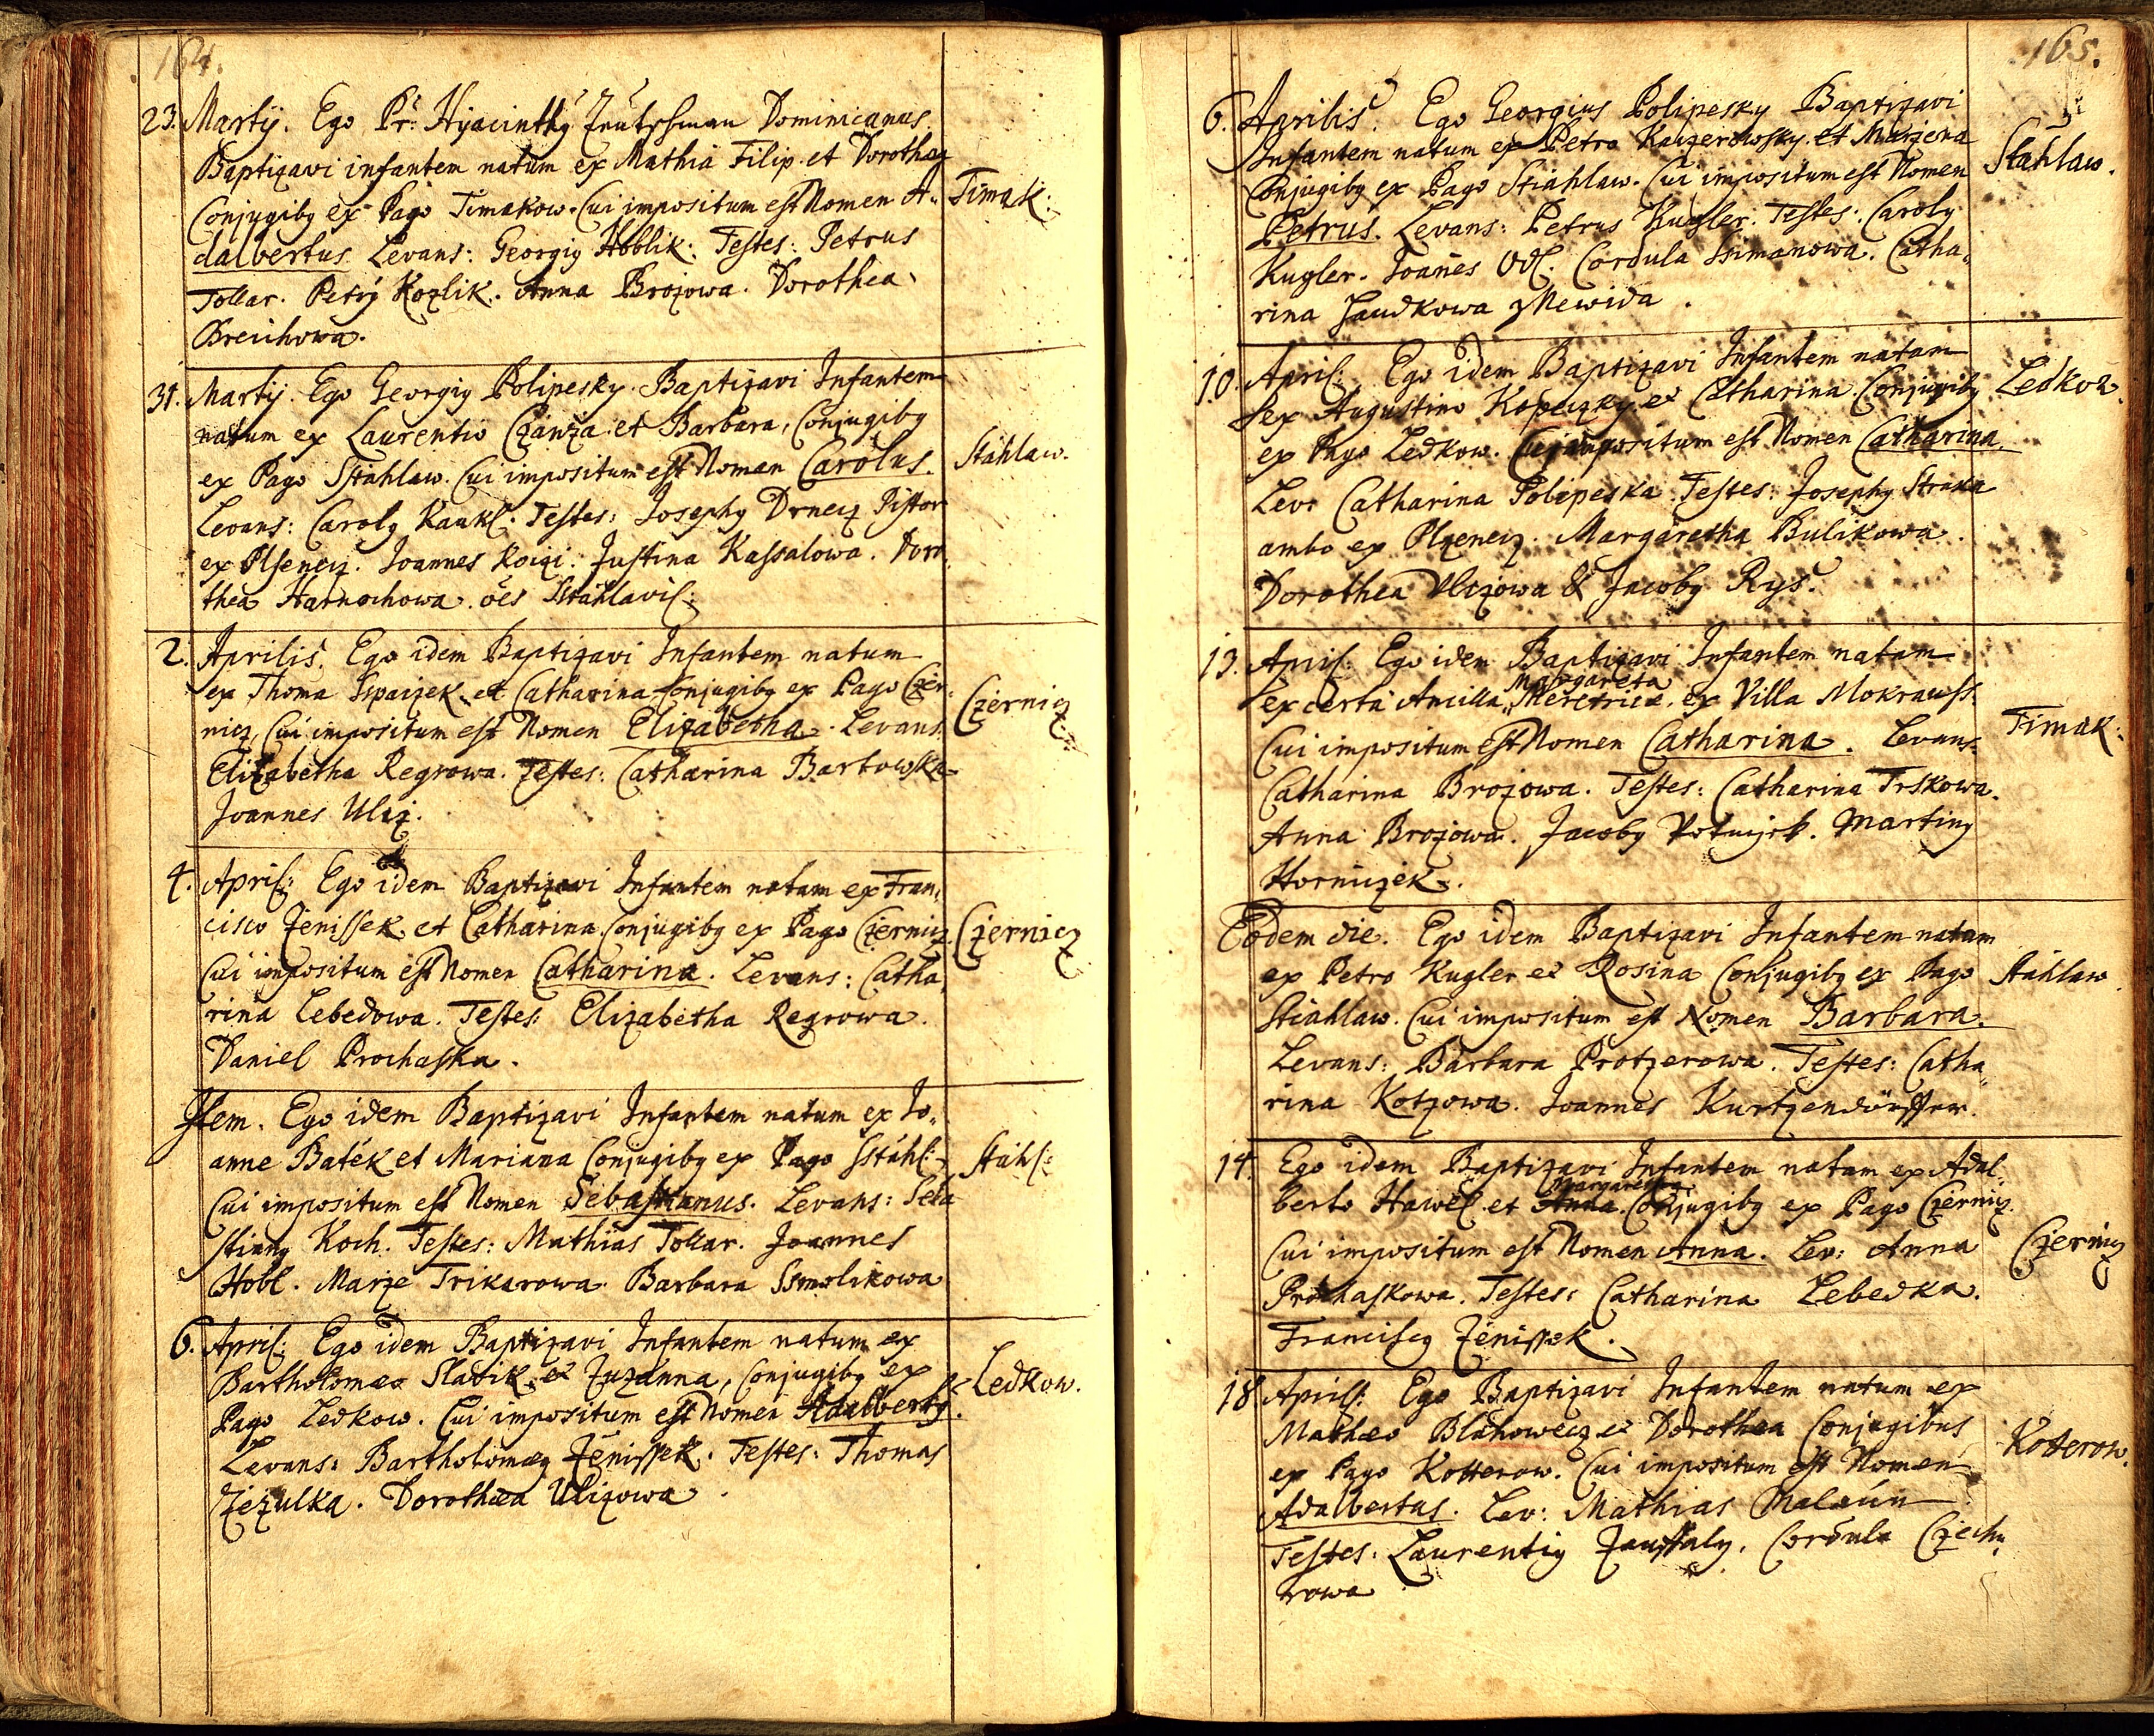 164.
23. Martij. Ego Pr: Hyacinthy Dominicanus
Baptizavi infantem natum ex Mathia Filip et Dorothea
Conjugiby ex Pago Timakow. Cui impositum est Nomen A= Timak:
dalbertus. Levans: Georgiy Hoblik: Testes: Petrus
Tollar. Petry Kozlik. Anna Brozowa. Dorothea
Breuhowa.
31. Martij. Ego Georgiy Polipesky Baptizavi Infantem
natum ex Laurentio Czanza et Barbara, Conjugiby
ex Pago Sstahlaw. Cui impositum est Nomen Carolus. Stahlaw.
Levans: Caroly Kaukl. Testes: Josephy Drnecz Pistor
ex Plsenecz. Joannes Koczi. Justina Kassalowa. Doro=
thea Harnochowa. oes Sstahlavil:
2. Aprilis. Ego idem Baptizavi Infantem natum
ex Thoma Sspaczek et Catharina Conjugiby ex Pago Czer=
nicz, Cui impositum est Nomen Elizabetha. Levans: Czernicz
Elizabetha Regrowa. Testes: Catharina Bartowska
Joannes Ulcz.
4. Apris: Ego idem Baptizavi Infantem natam ex Fran=
cisco Jenissek et Catharina, Conjugiby ex Pago Czernicz. Czernicz
Cui impositum est Nomen Catharina. Levans: Catha=
rina Lebedowa. Testes: Elizabetha Regrowa.
Daniel Prochaska.
Item. Ego idem Baptizavi Infantem natum ex Jo=
anne Batek et Mariana Conjugiby ex Pago Sstahl: Stahl:
Cui impositum est Nomen Sebastianus. Levans: Seba
stiany Koch. Testes: Mathias Tollar. Joannes
Hobl. Marze Trikarowa. Barbara Ssmolikowa
6. Apris: Ego idem Baptizavi Infantem natum ex
Bartholomaeo Sladik et Zuzanna, Conjugiby ex
Pago Ledkow. Cui impositum est Nomen Adalberty. Ledkow.
Levans: Bartholomaey Jenissek. Testes: Thomas
Jezulka. Dorothea Ulczowa.
165.
6. Aprilis. Ego Georgius Polipesky Baptizavi
Infantem natum ex Petro Kaczerowsky et Marzena
Conjugiby ex Pago Stiahlaw. Cui impositum est Nomen Stahlaw.
Petrus. Levans: Petrus Kugler. Testes: Caroly
Kugler. Joanes Odl. Cordula Ssimanowa. Catha=
rina Haudkowa
10. Apris: Ego idem Baptizavi Infantem natam
ex Augustino Kopeczky et Catharina Conjugiby Ledkow.
ex Pago Ledkow. Cui impositum est Nomen Catharina.
Lev: Catharina Polipeska. Testes: Josephy Straka
ambo ex Plzenecz. Margaretha Bulikowa.
Dorothea Ulczowa & Jacoby Rys.
13. Apris: Ego idem Baptizavi Infantem natam
Margareta
ex certa Ancilla, Meretrice, ex Villa Mokrauss.
Cui impositum est Nomen Catharina. Levans: Timak:
Catharina Brozowa. Testes: Catharina Trskowa.
Anna Brozowa. Jacoby Martiny
Horniczek.
Eodem die. Ego idem Baptizavi Infantem natam
ex Petro Kugler et Rosina Conjugiby ex Pago Stahlaw.
Stiahlaw. Cui impositum est Nomen Barbara.
Levans: Barbara Protzerowa. Testes: Catha=
rina Kotzowa. Joannes Kurtzendörffer.
14. Ego idem Baptizavi Infantem natam ex Adal=
Margaretha
berto Hawel et Anna Conjugiby ex Pago Czernicz.
Cui impositum est Nomen Anna. Lev: Anna Czernicz
Prochaskowa. Testes: Catharina Lebedka.
Franciscy Jenissek.
18 Aprils: Ego Baptizavi Infantem natum ex
Mathaeo Blahowecz et Dorothea Conjugibus
ex Pago Kotterow. Cui impositum est Nomen Kotterow.
Adalbertus. Lev: Mathias Malaun
Testes: Laurentiy Cordula Czech=
rowa